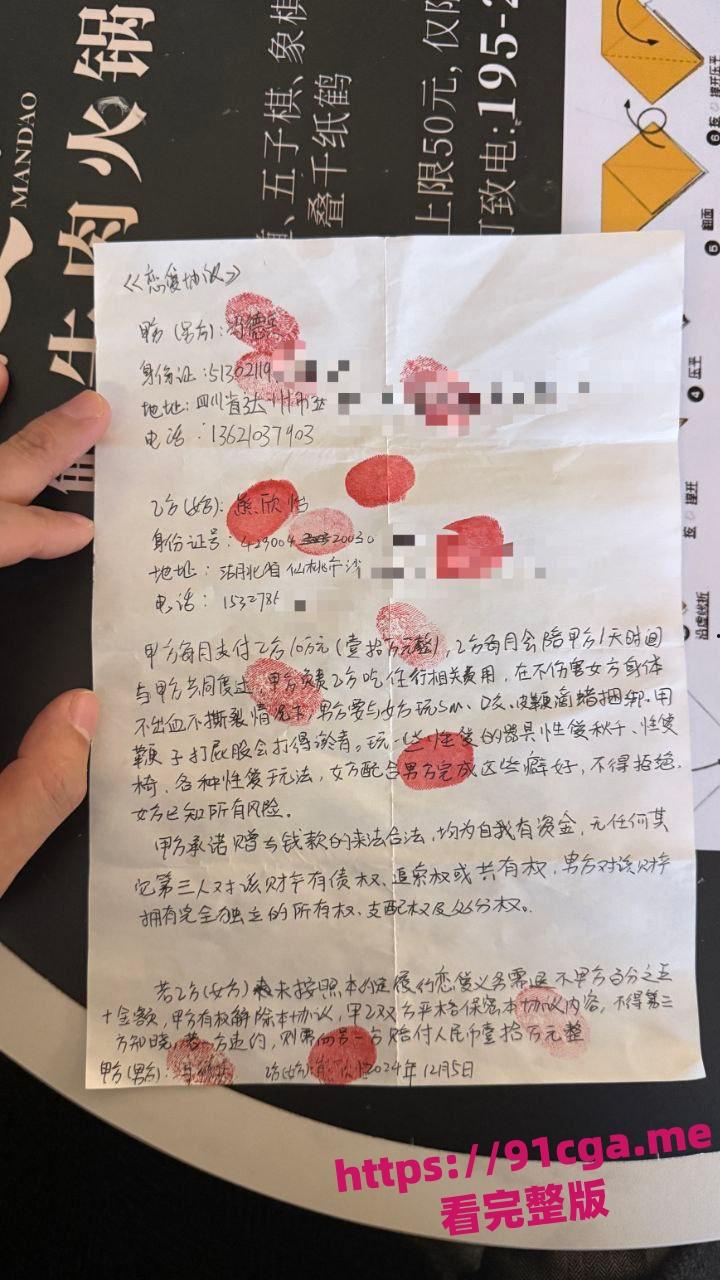 鲜牛肉火锅
MANDAO
、五子棋、象棋
叠千纸鹤
上限50元,仅限
可致电:
⑥
⑤ 翻面
④ 压平
沿虚线折
《恋爱协议》
甲方(男方):
身份证:
地址:
电话:
乙方(女方):
身份证号:
地址:
电话:
甲方每月支付乙方10万元(壹拾万元整),乙方每月会陪甲方1天时间
与甲方共同度过,甲方负责乙方吃住行相关费用,在不伤害女方身体
不出血不撕裂情况下,男方要与女方玩sm、口交、皮鞭滴蜡捆绑、用
鞭子打屁股会打得淤青。玩一些性爱的器具性爱秋千、性爱
椅、各种性爱玩法,女方配合男方完成这些癖好,不得拒绝.
女方已知所有风险。
甲方承诺赠与钱款的来法合法,均为自我有资金,无任何其
它第三人对该财产有债权、追索权或共有权,男方对该财产
拥有完全独立的所有权、支配权及处分权。
若乙方(女方)未按照本约定履行恋爱义务需退还甲方百分之五
十金额,甲方有权解除本协议,甲乙双方严格保密本协议内容,不得第三
方知晓,若一方违约,则需向另一方赔付人民币壹拾万元整
甲方(男方): 乙方(女方): 2024年12月5日
https://91cga.me
看完整版